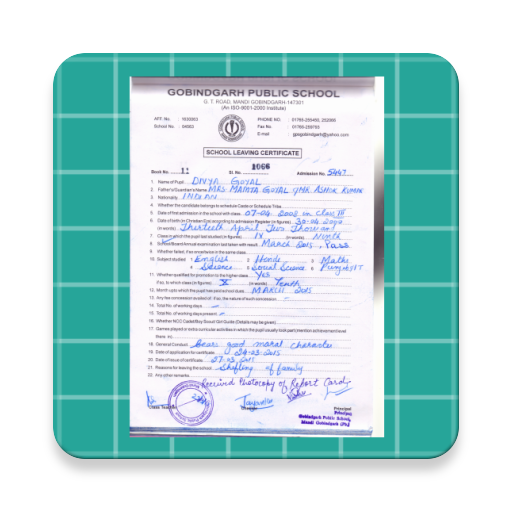 GOBINDGARH PUBLIC SCHOOL
G. T. ROAD, MANDI GOBINDGARH-147301
(An ISO-9001-2000 Institute)
AFF. No. : 1630003 PHONE NO. : 01765-255450, 252066
School No. : 04603 Fax No. : 01765-259703
E-mail : gpsgobindgarh@yahoo.com
SCHOOL LEAVING CERTIFICATE
Book No. 11 Sl. No. 1066 Admission No. 5447
1. Name of Pupil DIVYA GOYAL
2. Father's/Guardian's Name MRS. MAMTA GOYAL MR. ASHOK KUMAR
3. Nationality INDIAN
4. Whether the candidate belongs to schedule Caste or Schedule Tribe
5. Date of first admission in the school with class 07-04-2008 in class III
6. Date of birth (in Christian Era) according to admission Register (in figures) 30-04-2000
(in words) Thirtieth April Two Thousand
7. Class in which the pupil last studied (in figures) IX (in words) Ninth
8. School/Board Annual examination last taken with result March 2015, Pass
9. Whether failed, if so once/twice in the same class
10. Subject studied 1. English 2. Hindi 3. Maths
4. Science 5. Social Science 6. Punjabi
11. Whether qualified for promotion to the higher class Yes
If so, to which class (in figures) X (in words) Tenth
12. Month upto which the pupil has paid school dues MARCH 2015
13. Any fee concession availed of : if so, the nature of such concession
14. Total No. of working days
15. Total No. of working days present
16. Whether NCC Cadet/Boy Scout/Girl Guide (Details may be given)
17. Games played or extra curricular activities in which the pupil usually took part (mention achievement level
there in)
18. General Conduct Bears good moral character
19. Date of application for certificate 24-03-2015
20. Date of issue of certificate 27-03-2015
21. Reasons for leaving the school Shifting of family
22. Any other remarks
Received Photocopy of Report Card
Class Teacher
Principal
Principal
Gobindgarh Public School,
Mandi Gobindgarh (Pb.)